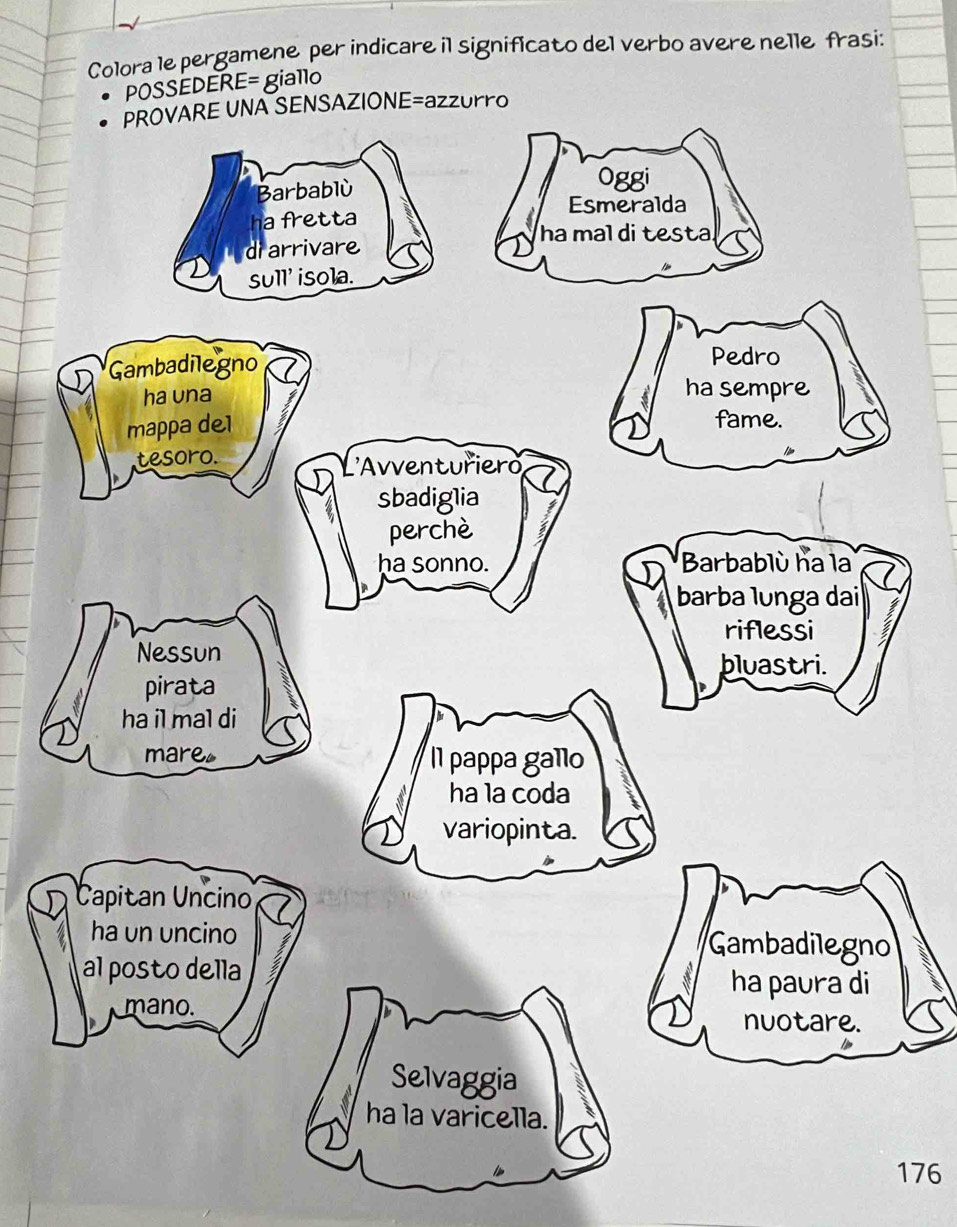 Colora le pergamene per indicare il significato del verbo avere nelle frasi:
• POSSEDERE= giallo
• PROVARE UNA SENSAZIONE=azzurro
Barbablù
ha fretta
di arrivare
sull' isola.
Oggi
Esmeralda
ha mal di testa.
Gambadilegno
ha una
mappa del
tesoro.
Pedro
ha sempre
fame.
L'Avventuriero
sbadiglia
perchè
ha sonno.
Barbablù ha la
barba lunga dai
riflessi
bluastri.
Nessun
pirata
ha il mal di
mare.
Il pappa gallo
ha la coda
variopinta.
Capitan Uncino
ha un uncino
al posto della
mano.
Gambadilegno
ha paura di
nuotare.
Selvaggia
ha la varicella.
176